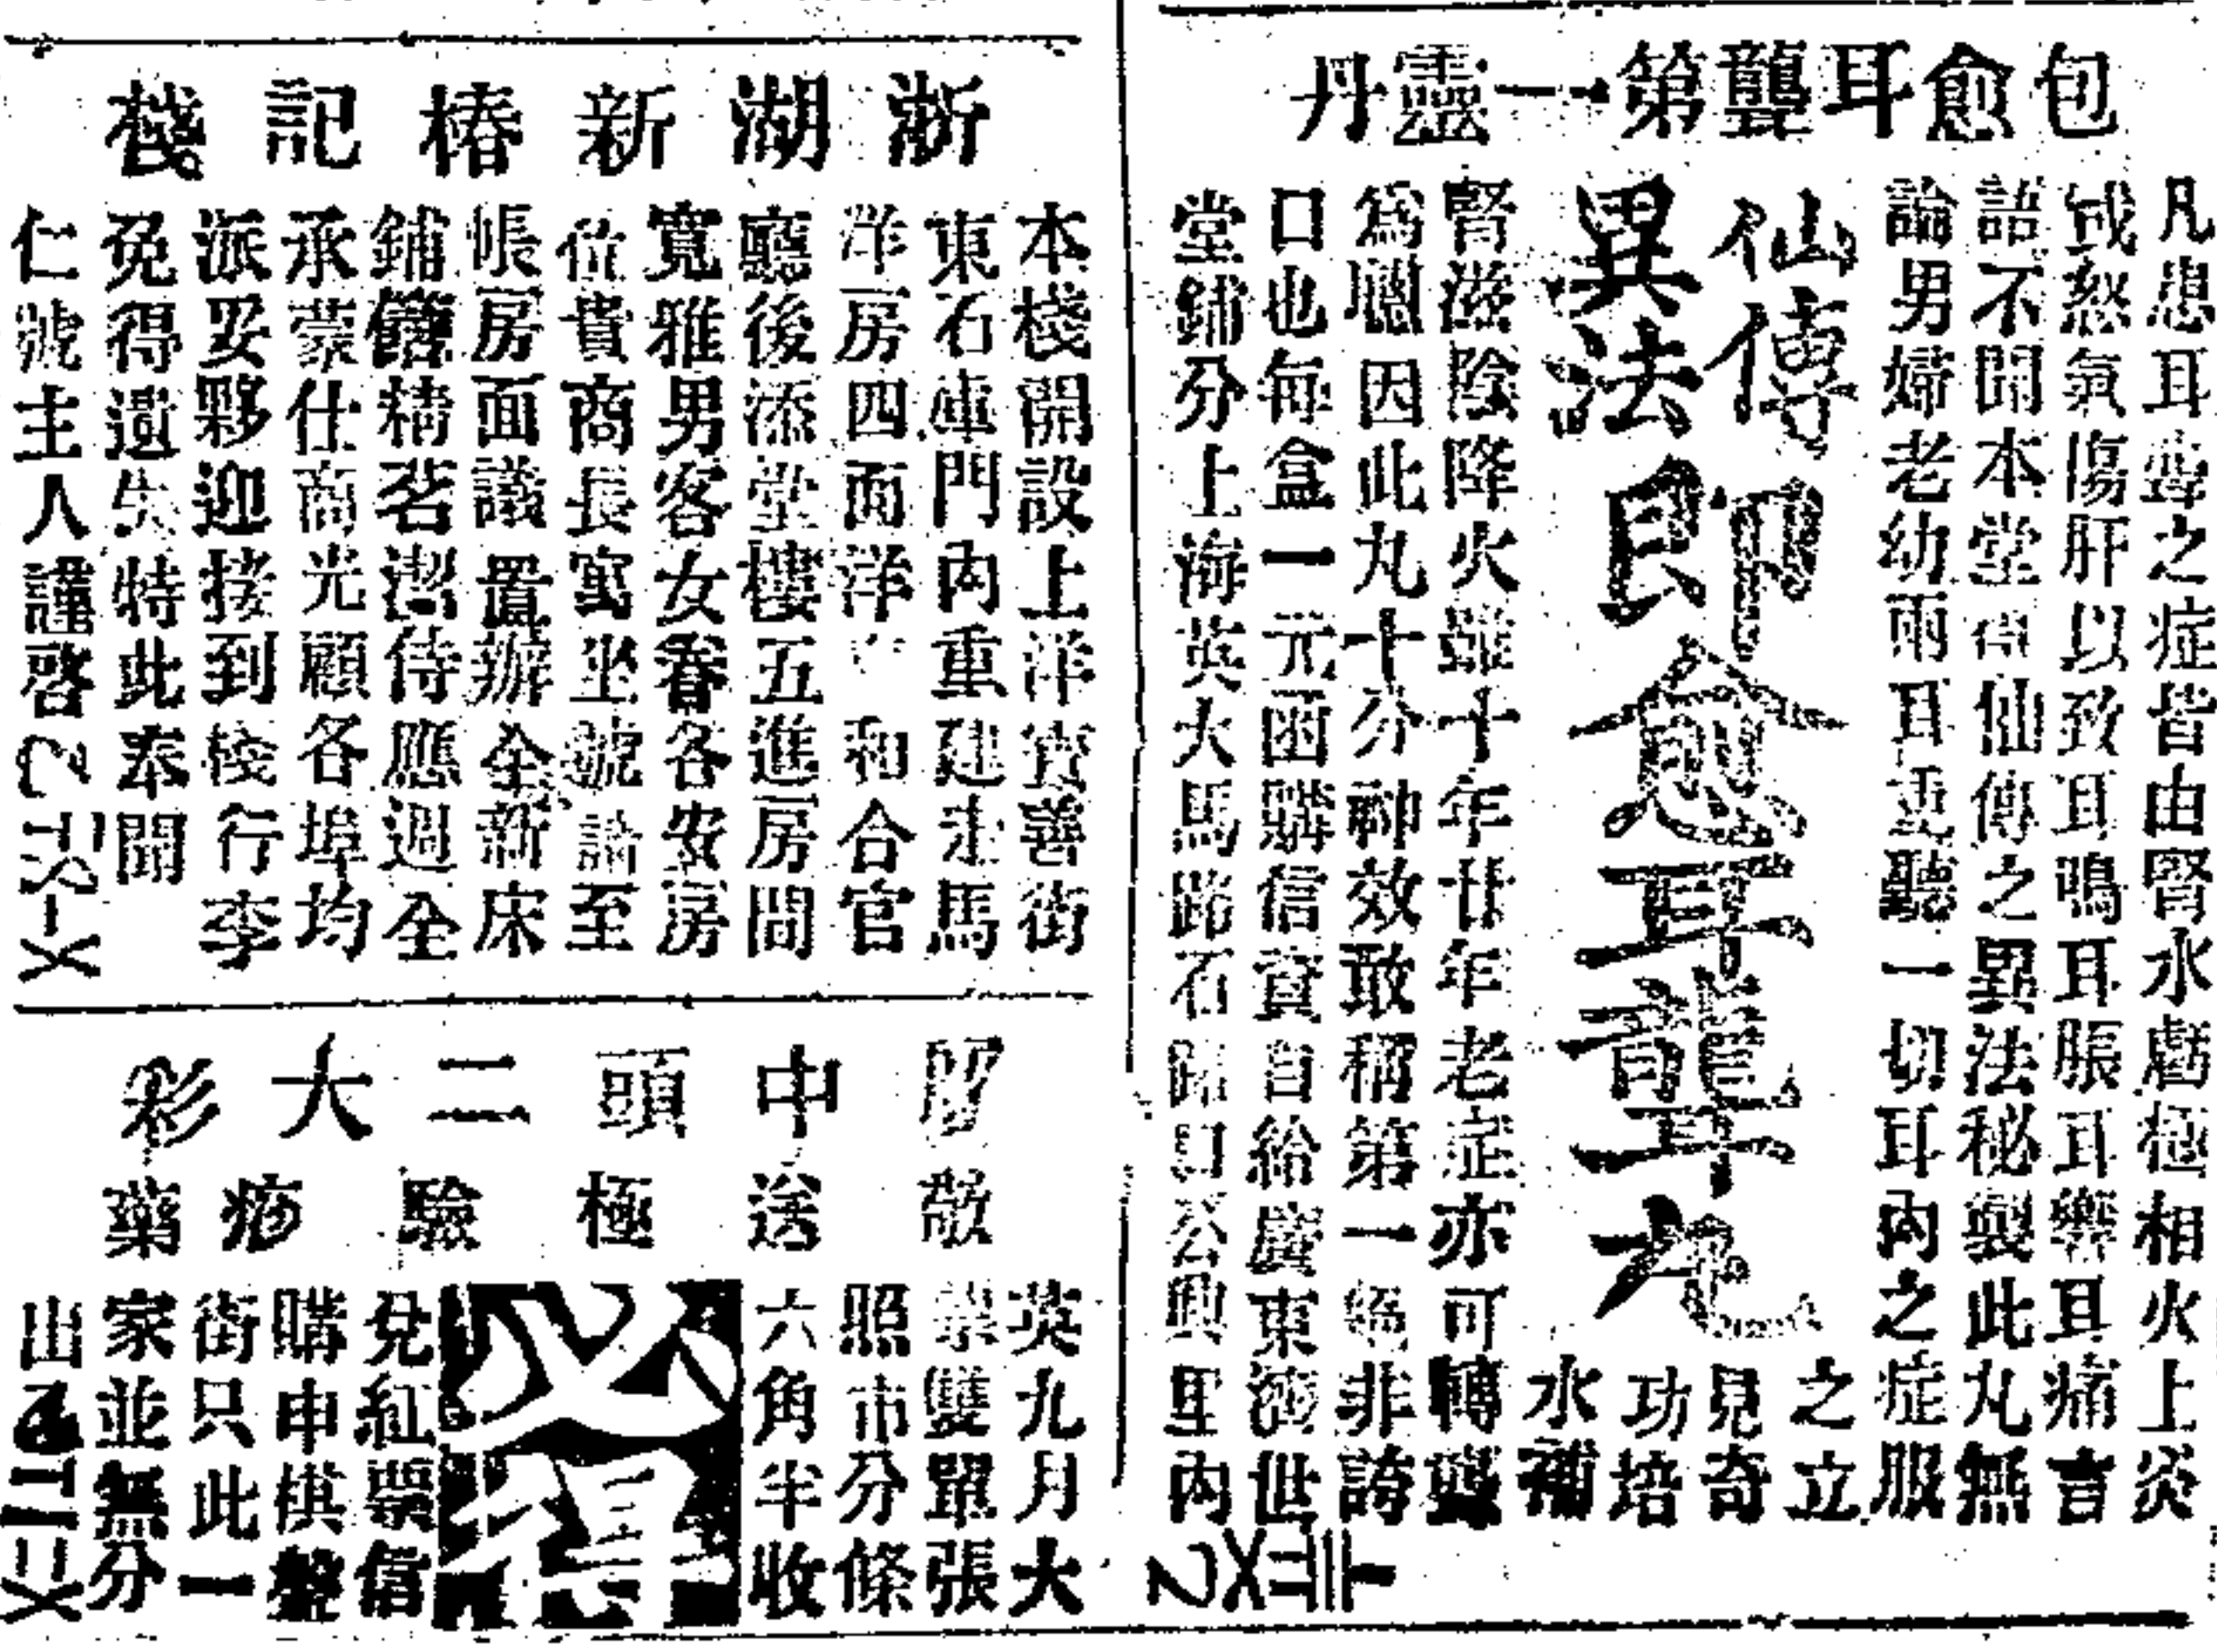 包愈耳聾第一靈丹
凡患耳聾之症皆由腎水虧極相火上炎
或怒氣傷肝以致耳鳴耳脹耳響耳痛言
語不聞本堂得仙傳之異法秘製此丸無
論男婦老幼兩耳重聽一切耳內之症服
仙傳
異法
即愈耳聾丸
之立
見奇
功培
水補
腎滋陰降火雖十年廿年老症亦可轉聾
為聰因此丸十分神效敢稱第一 非誇
口也每盒一元函購信資自給廣東濟世
堂鋪分上海英大馬路石路口公興里內
浙湖新椿記棧
本棧開設上洋寶善街
東石庫門內重建走馬
洋房四面洋 和合官
廳後添堂樓五進房間
寬雅男客女眷各安房
位貴商長寓坐號 至
帳房面議置辦全新床
鋪饍精茗潔侍應週全
承蒙仕商光顧各埠均
派妥夥迎接到棧行李
免得遺失特此奉聞
仁號主人謹啓
中頭二大彩
敬送極驗痧藥
英九月大
票雙單張
照市分條
六角半收
兌紅票信
購申棋盤
街只此一
家並無分
出